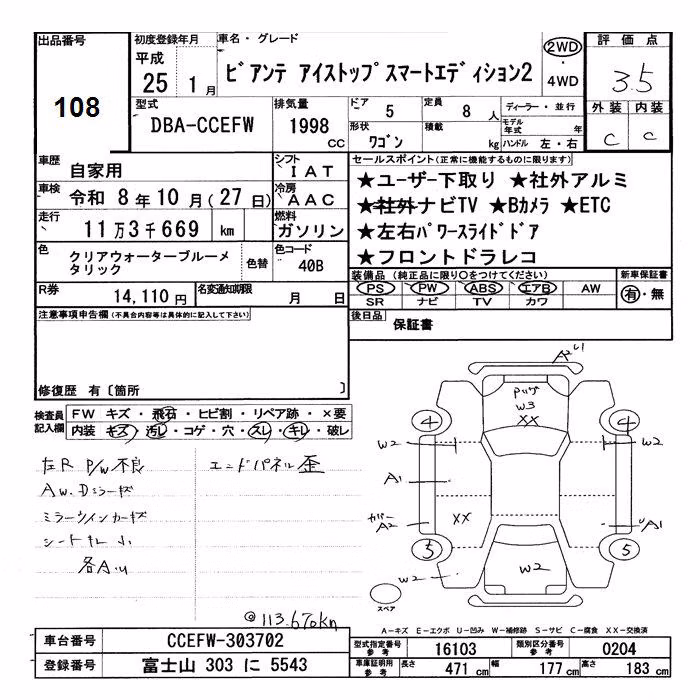 出品番号
108
初度登録年月
平成
25 1月
車名・グレード
ビアンテ アイストップスマートエディション2
2WD
・
4WD
評価点
3.5
外装 内装
C C
型式
DBA-CCEFW
排気量
1998
CC
ドア 5
定員 8 人
形状
ワゴン
積載 kg
ディーラー・並行
モデル年式 年
ハンドル 左・右
車歴
自家用
シフト
IAT
車検
令和 8年10月(27日)
冷房
AAC
走行
11万3千669 km
燃料
ガソリン
色
クリアウォーターブルーメタリック
色替
色コード
40B
R券
14,110円
名変通知期限
月 日
セールスポイント(正常に機能するものに限ります)
★ユーザー下取り ★社外アルミ
★社外ナビTV ★Bカメラ ★ETC
★左右パワースライドドア
★フロントドラレコ
装備品 (純正品に限り○をつけてください)
PS PW ABS エアB AW
SR ナビ TV カワ
新車保証書
有・無
後日品
保証書
注意事項申告欄(不具合内容等は具体的に記入して下さい)
修復歴 有〔箇所 〕
検査員記入欄
FW キズ・飛石・ヒビ割・リペア跡・×要
内装 キズ・汚レ・コゲ・穴・スレ・キレ・破レ
左R P/W不良
エンドパネル歪
AW.Dミラーキズ
ミラーウインカーキズ
シートキレ小
各A.U
@113.670km
A2
U1
W3
XX
4
4
W2
W2
A1
XX
カバー
A2
A1
3
5
W2
W2
スペア
A-キズ E-エクボ U-凹み W-補修跡 S-サビ C-腐食 XX-交換済
車台番号
CCEFW-303702
登録番号
富士山 303 に 5543
型式指定番号
参考
16103
類別区分番号
参考
0204
車庫証明用
参考
長さ 471 cm
幅 177 cm
高さ 183 cm